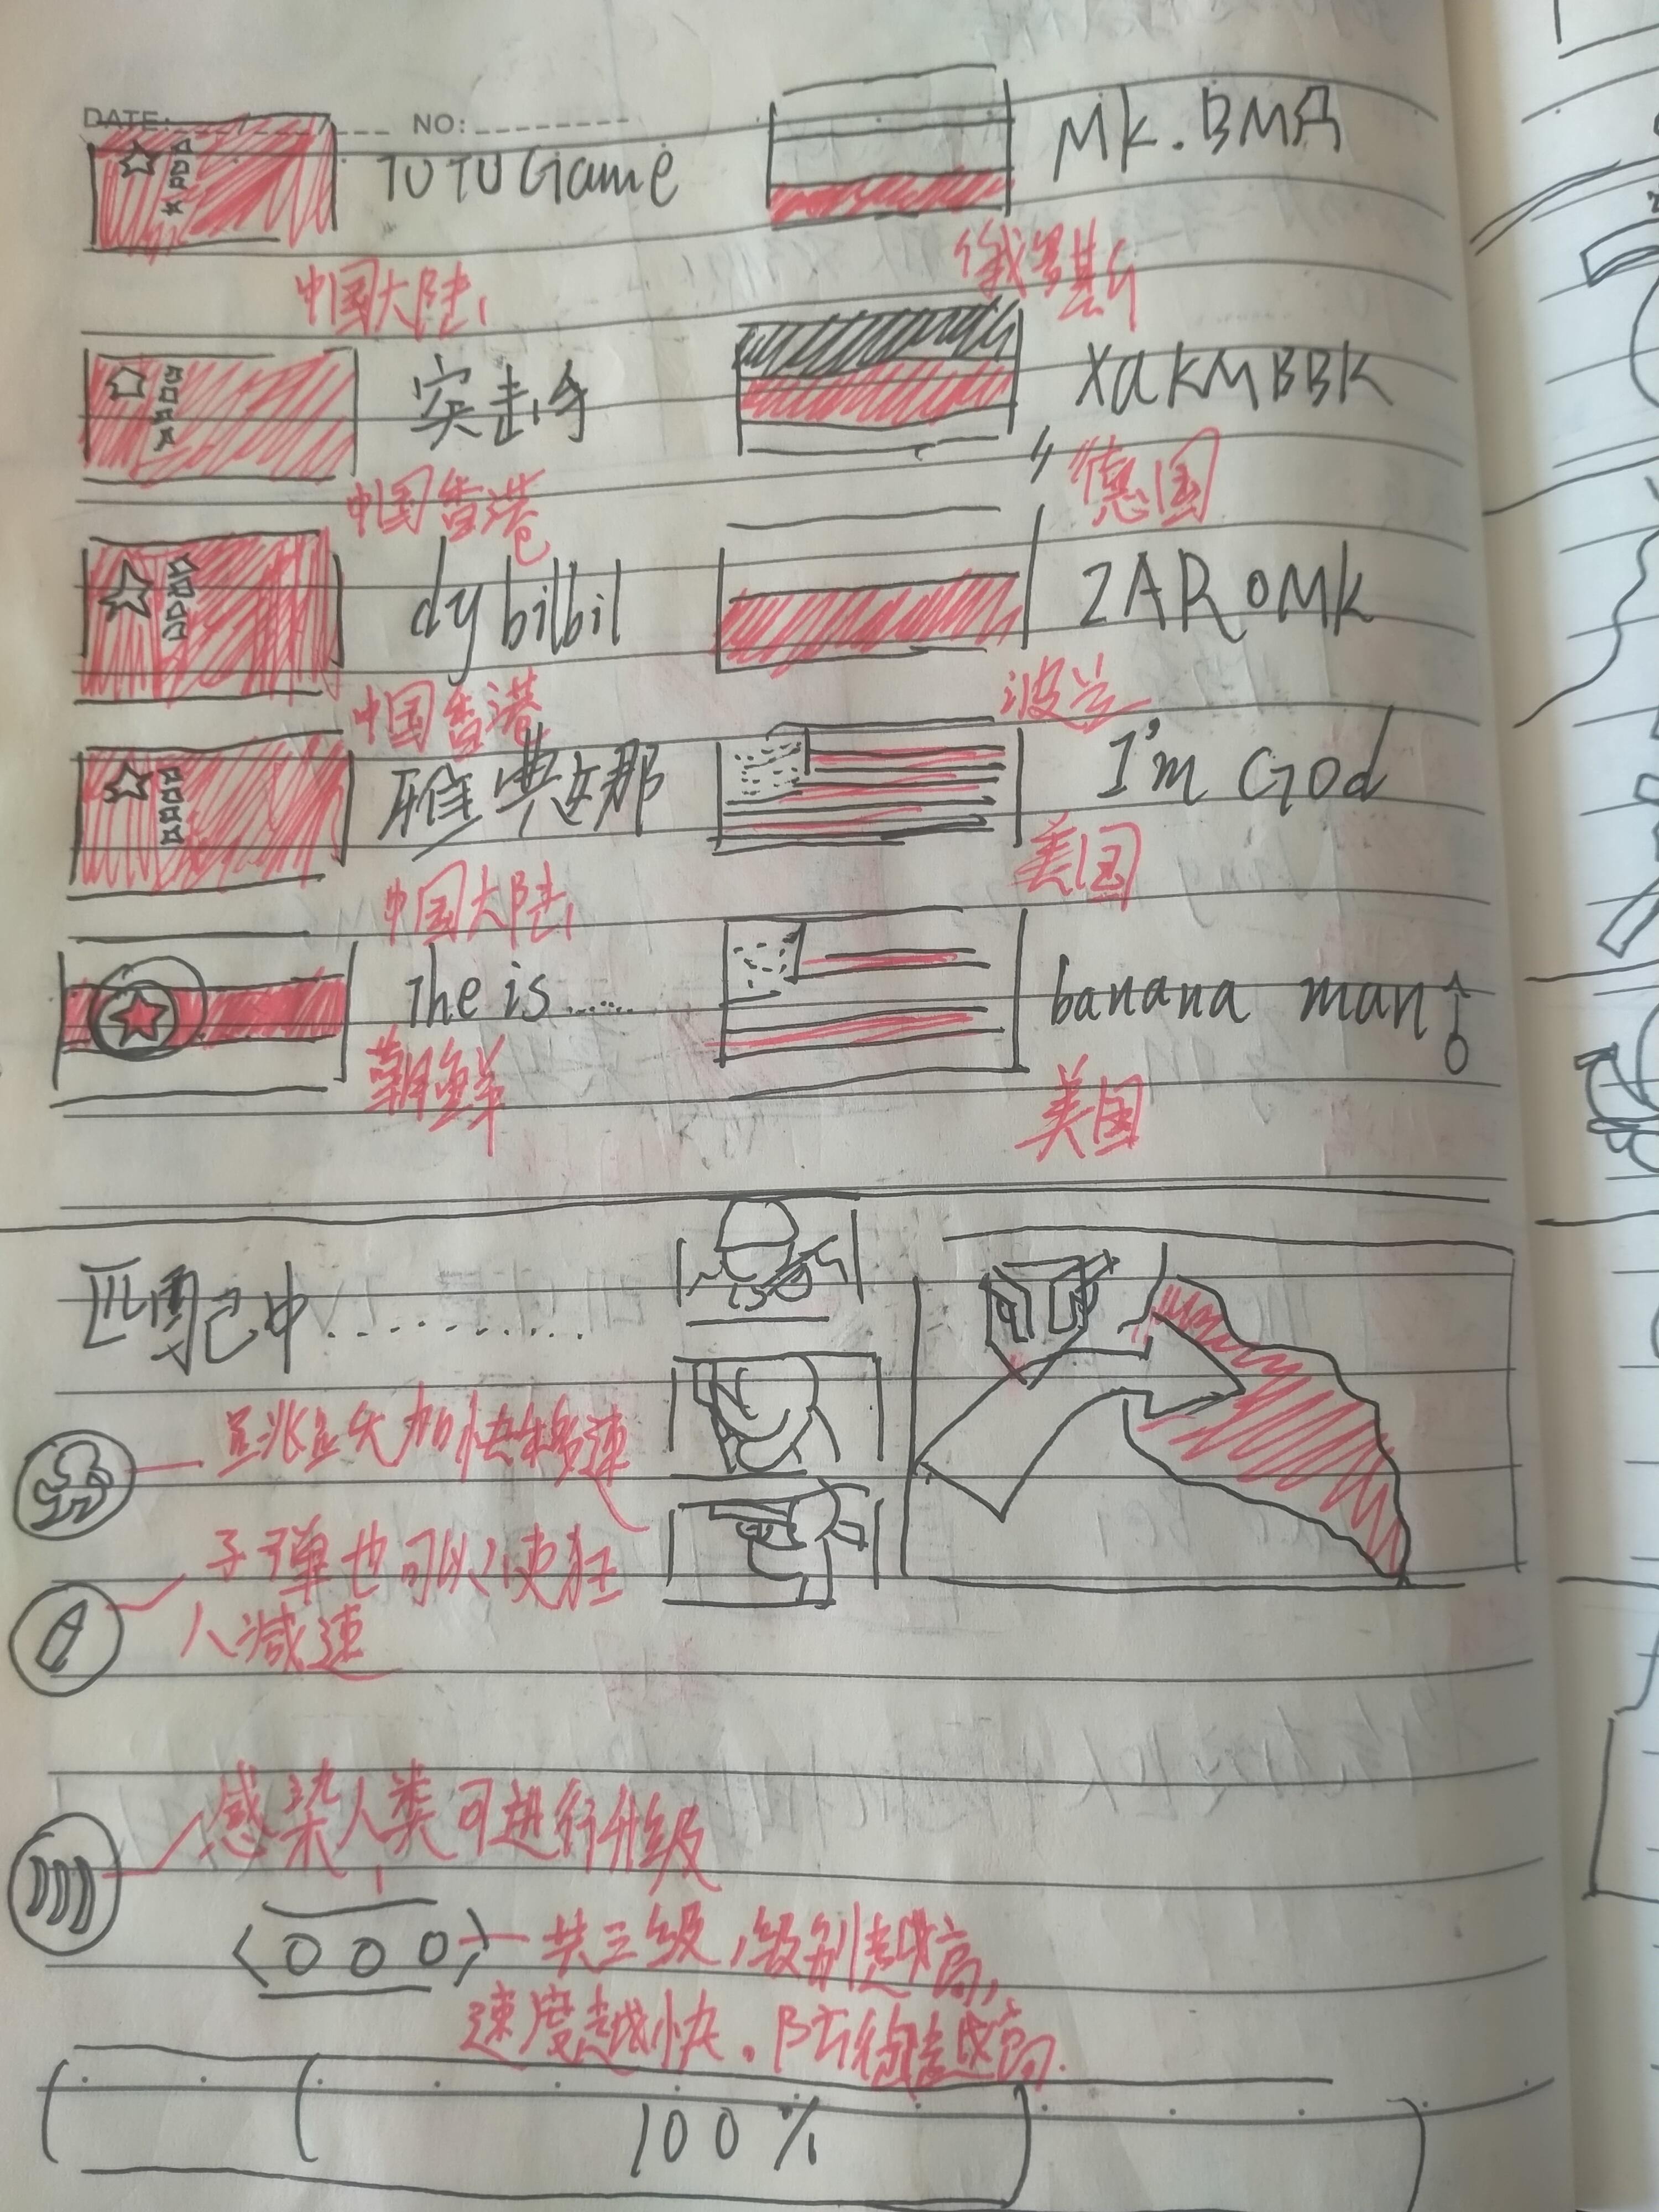 DATE: NO:
TUTU Game
中国大陆
突击手
中国香港
dy bilbil
中国香港
雅典娜
中国大陆
The is......
朝鲜
MK.BMЯ
俄罗斯
XaKMBBK
德国
ZAROMK
波兰
I'm God
美国
banana man
美国
匹配中............
跳跃加快移速
子弹也可以使狂
人减速
感染人类可进行升级
共三级,级别越高,
速度越快。防御越高.
100%